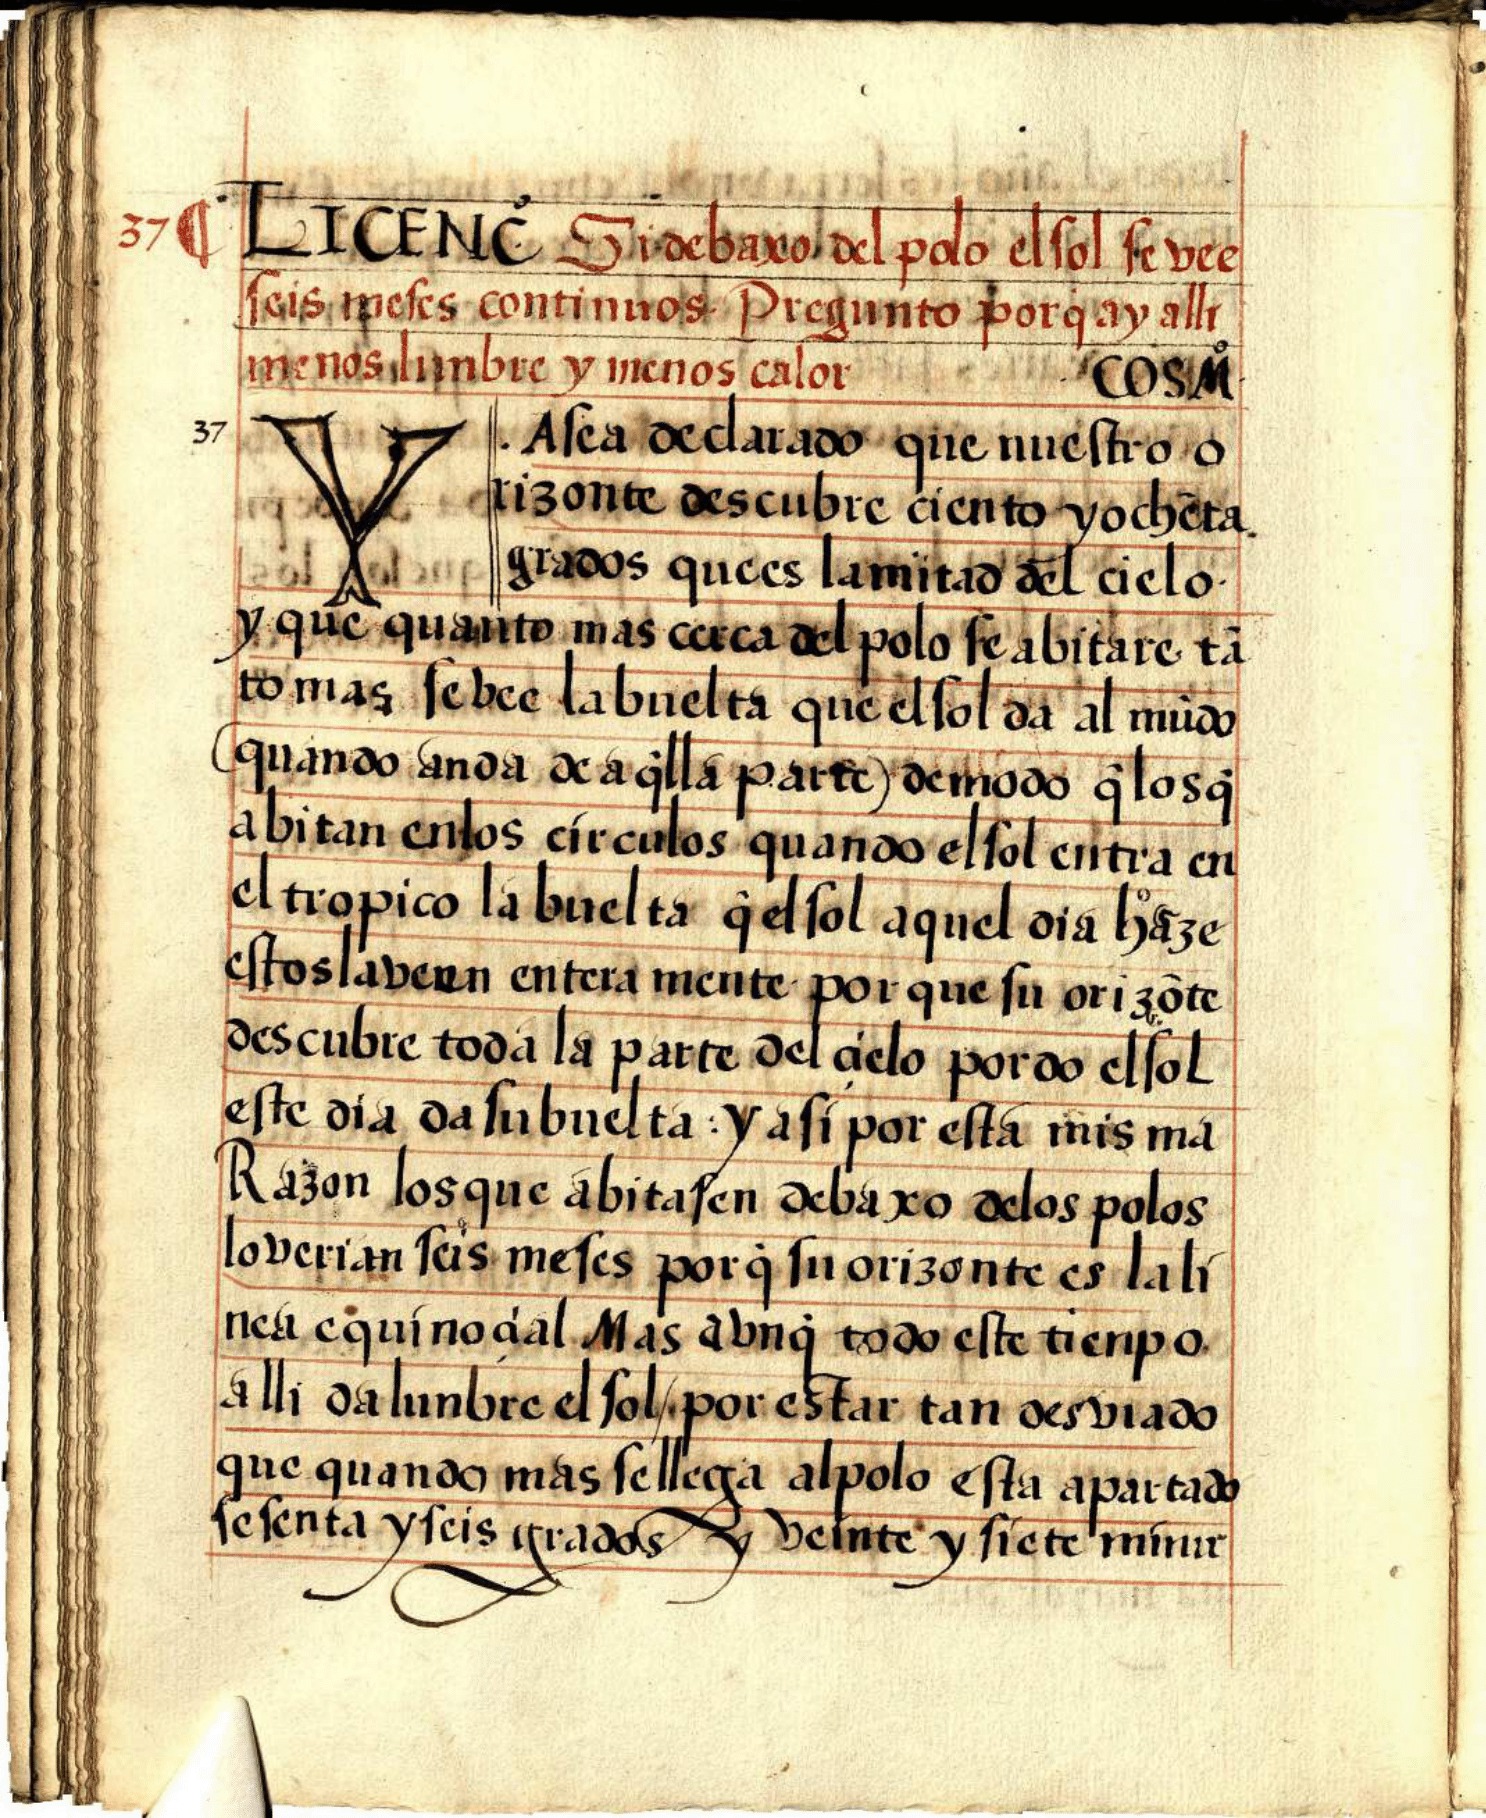 37 ¶ LICENCº Si debaxo del polo el sol se vee
seis meses continuos. Pregunto porq̃ ay alli
menos lunbre y menos calor COSMº
37 Y. A sea declarado que nuestro o
rizonte descubre ciento y ochēta
grados que es la mitad del cielo.
y que quanto mas cerca del polo se abitare tā
to mas se vee la buelta que el sol da al mūdo
(quando anda de aq̃lla parte) de modo q̃ los q̃
abitan en los circulos quando el sol entra en
el tropico la buelta q̃ el sol aquel dia haze
estos la veen entera mente porque su orizōte
descubre toda la parte del cielo por do el sol
este dia da su buelta: y asi por esta misma
Razon los que abitasen debaxo de los polos
lo verian seis meses porq̃ su orizonte es la li
nea equinoçial Mas avnq̃ todo este tienpo
alli da lunbre el sol / por estar tan desviado
que quando mas se llega al polo esta apartado
sesenta y seis grados y veinte y siete minu